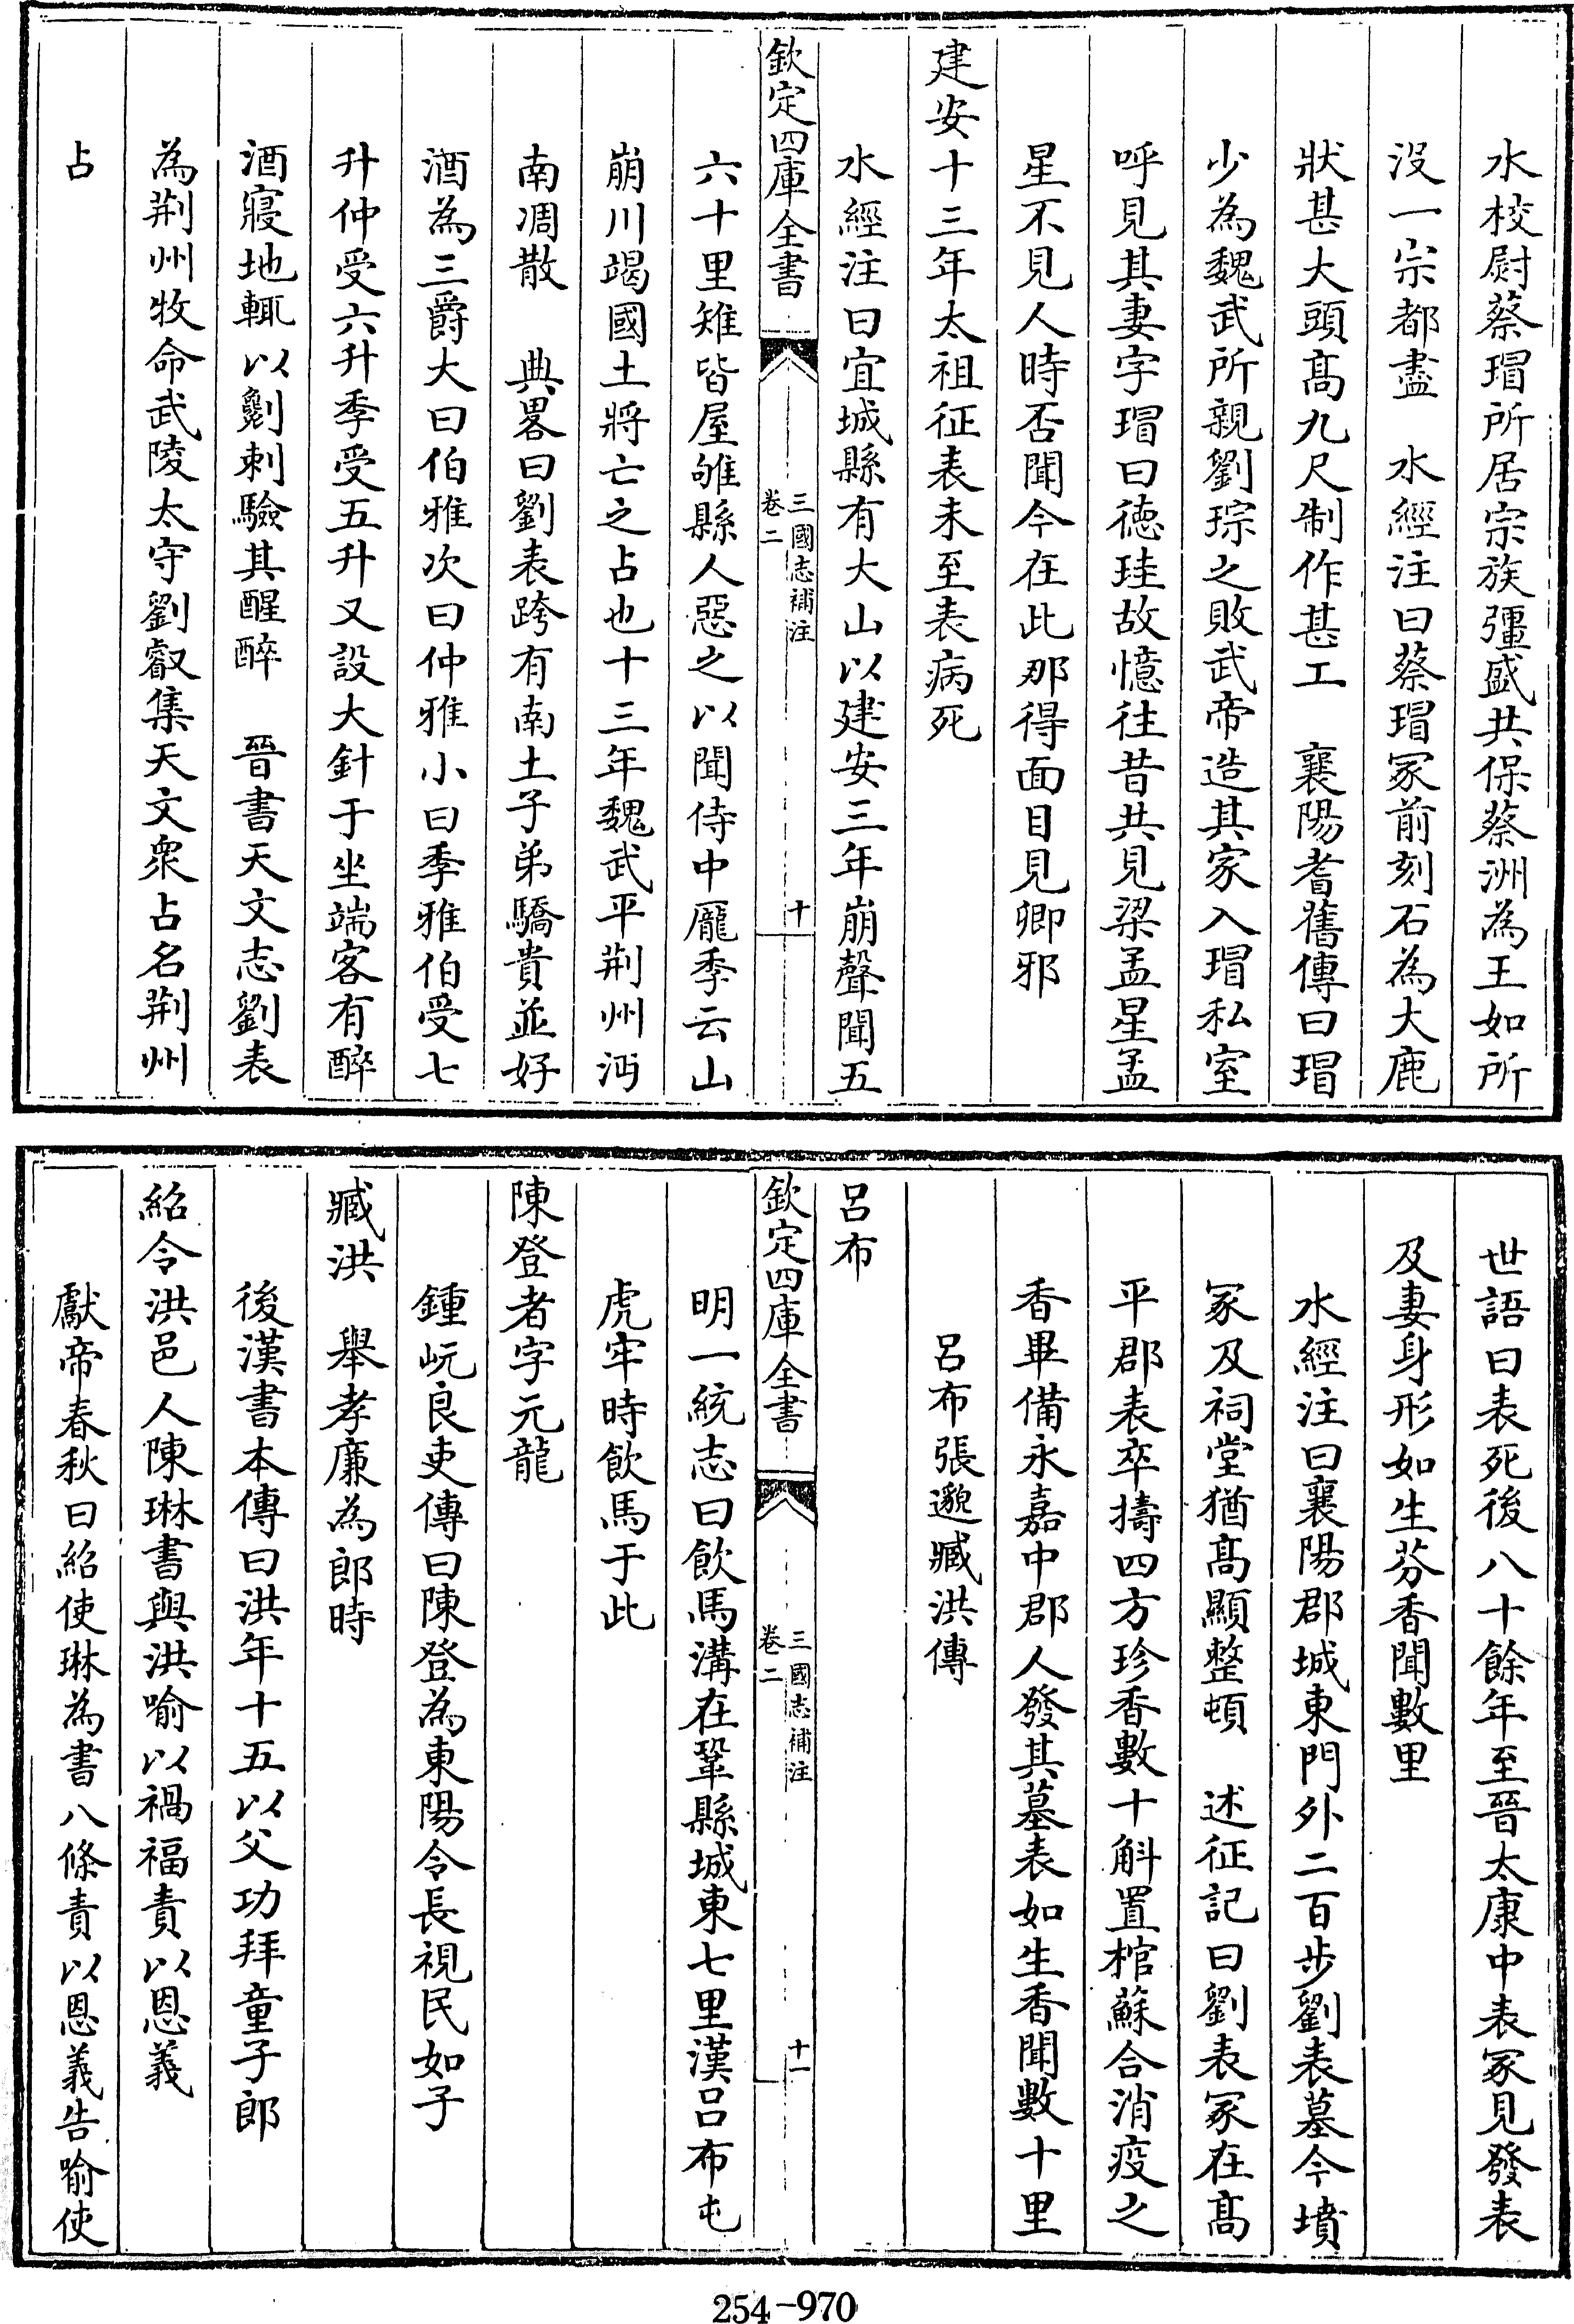 水校尉蔡瑁所居宗族彊盛共保蔡洲為王如所
沒一宗都盡　水經注曰蔡瑁冢前刻石為大鹿
狀甚大頭高九尺制作甚工　襄陽耆舊傳曰瑁
少為魏武所親劉琮之敗武帝造其家入瑁私室
呼見其妻字瑁曰德珪故憶往昔共見梁孟星孟
星不見人時否聞今在此那得面目見卿邪
建安十三年太祖征表未至表病死
水經注曰宜城縣有大山以建安三年崩聲聞五
欽定四庫全書
三國志補注
卷二
十
六十里雉皆屋雊縣人惡之以聞侍中龐季云山
崩川竭國土將亡之占也十三年魏武平荆州沔
南凋散　典畧曰劉表跨有南土子弟驕貴並好
酒為三爵大曰伯雅次曰仲雅小曰季雅伯受七
升仲受六升季受五升又設大針于坐端客有醉
酒寢地輒以劖刺驗其醒醉　晉書天文志劉表
為荆州牧命武陵太守劉叡集天文衆占名荆州
占
世語曰表死後八十餘年至晉太康中表冢見發表
及妻身形如生芬香聞數里
水經注曰襄陽郡城東門外二百步劉表墓今墳
冢及祠堂猶高顯整頓　述征記曰劉表冢在高
平郡表卒擣四方珍香數十斛置棺蘇合消疫之
香畢備永嘉中郡人發其墓表如生香聞數十里
呂布張邈臧洪傳
呂布
欽定四庫全書
三國志補注
卷二
十一
明一統志曰飲馬溝在鞏縣城東七里漢呂布屯
虎牢時飲馬于此
陳登者字元龍
鍾岏良吏傳曰陳登為東陽令長視民如子
臧洪　舉孝廉為郎時
後漢書本傳曰洪年十五以父功拜童子郎
紹令洪邑人陳琳書與洪喻以禍福責以恩義
獻帝春秋曰紹使琳為書八條責以恩義告喻使
254-970